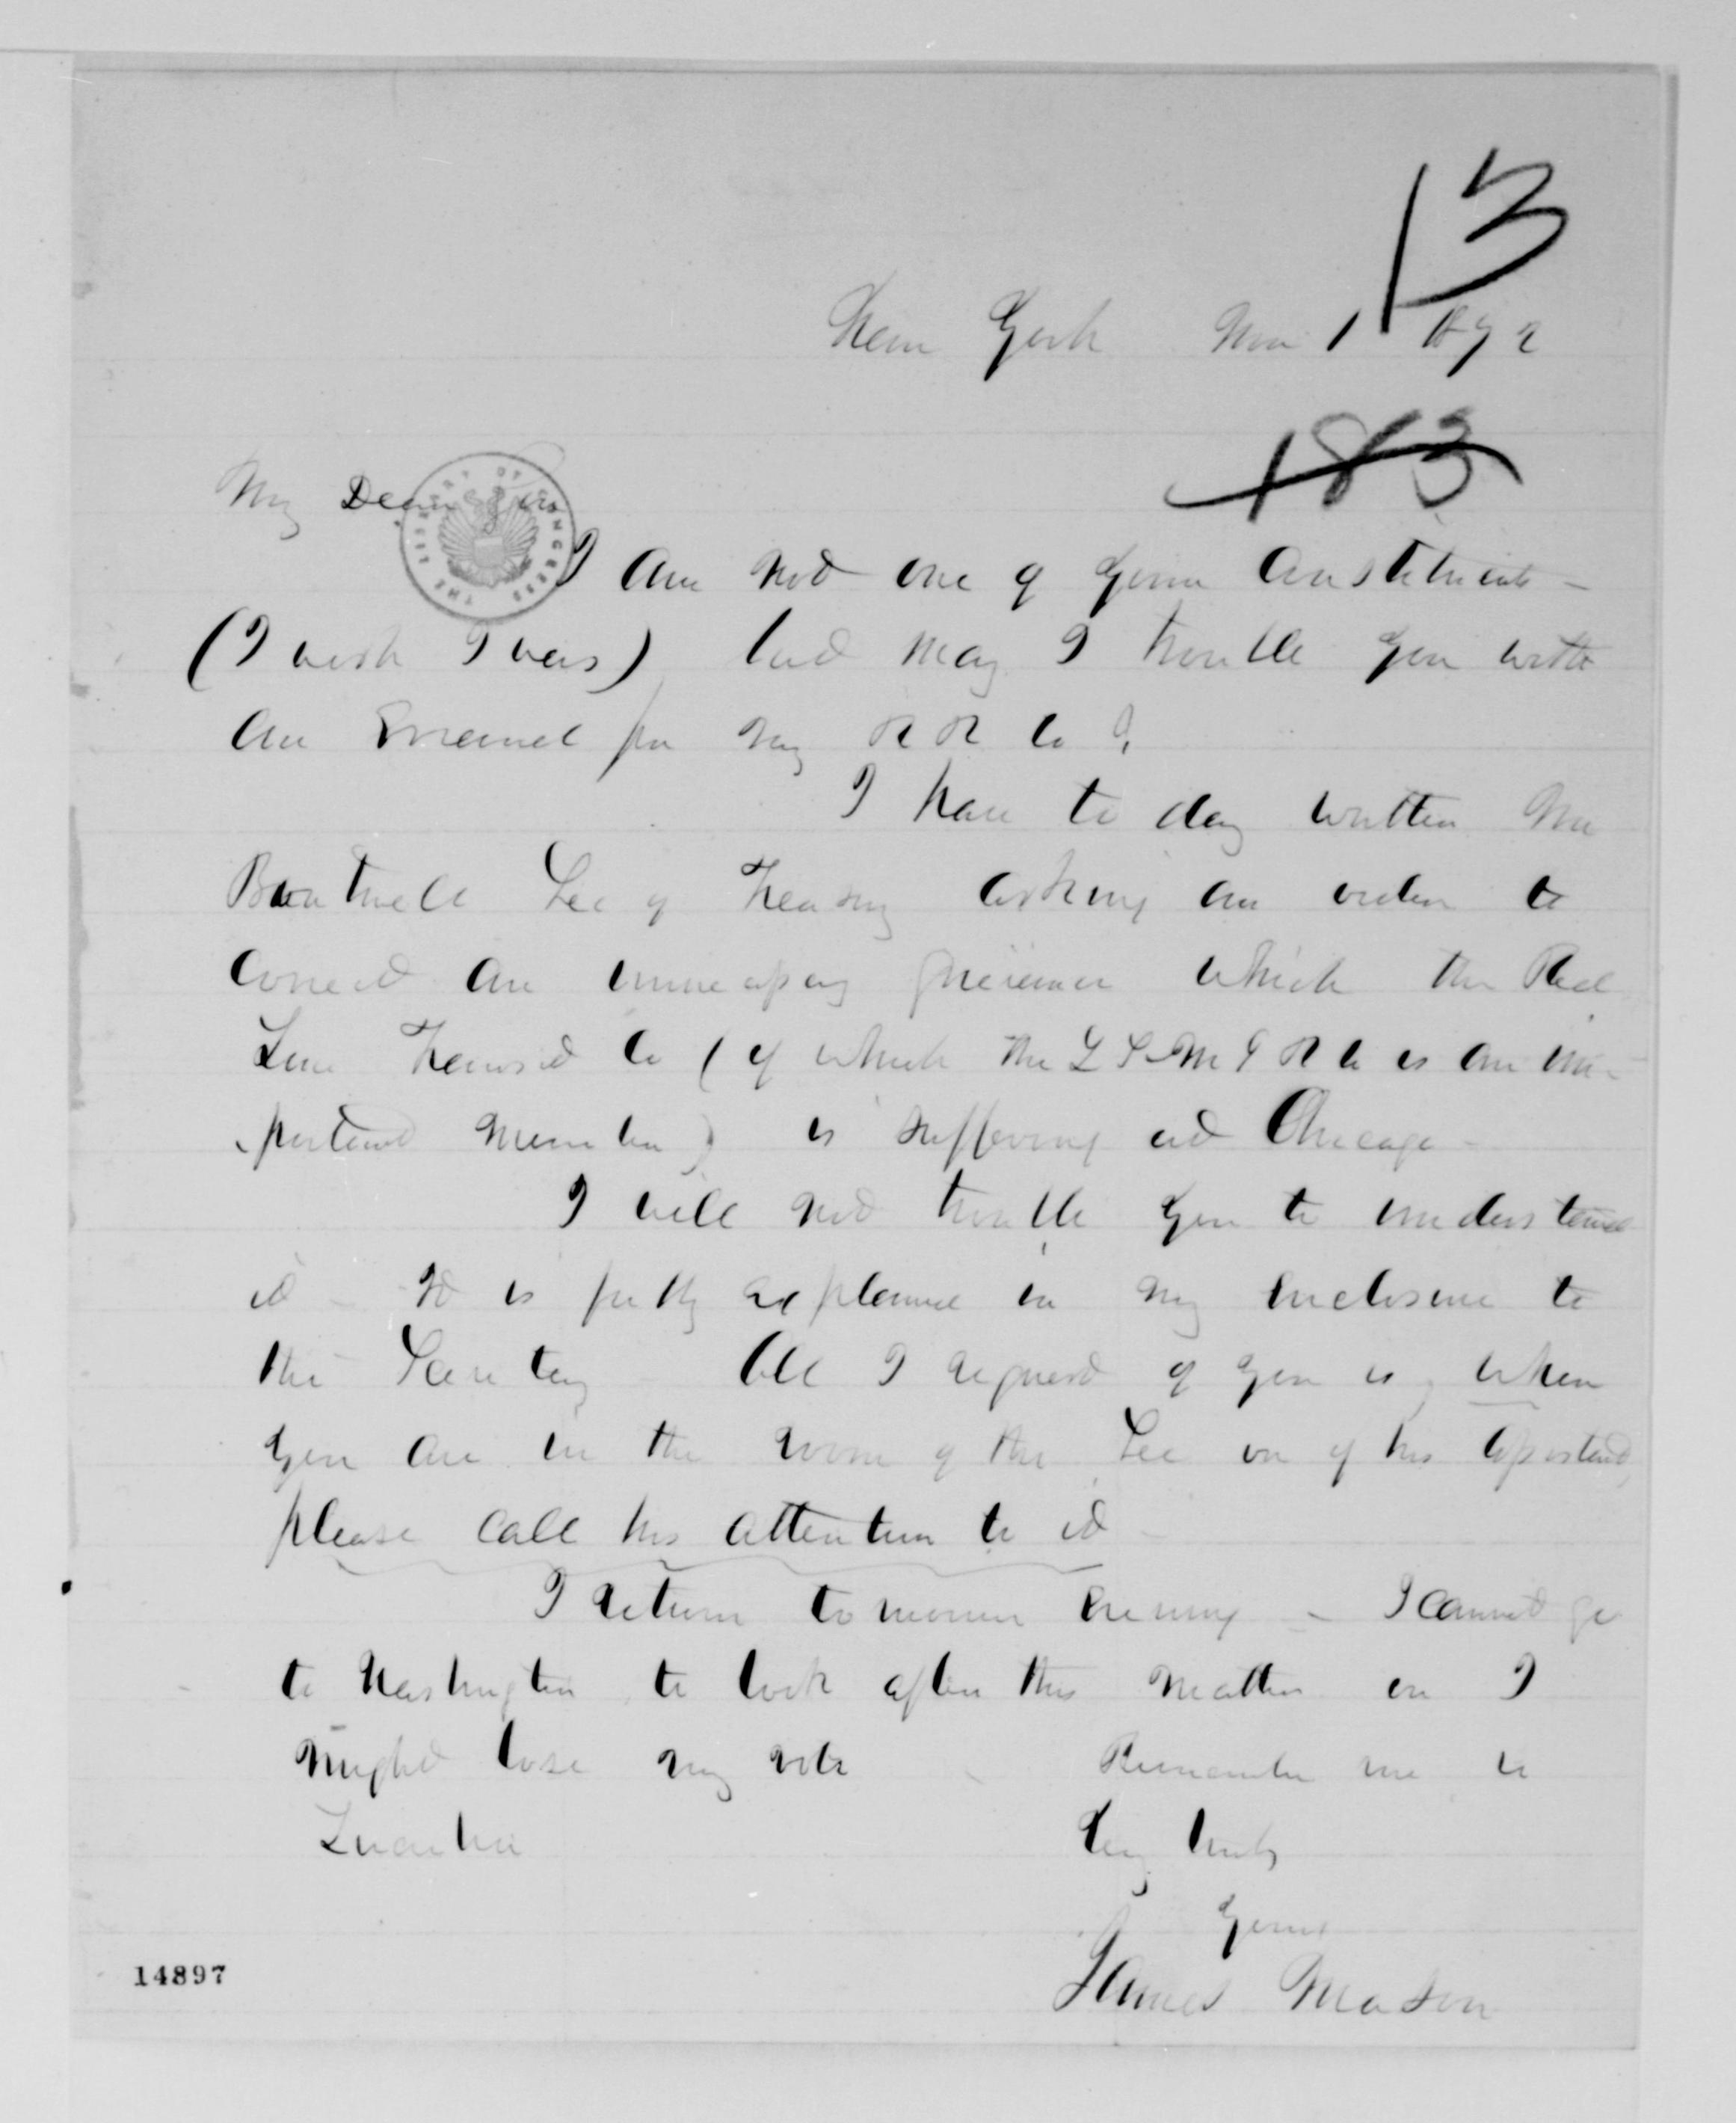 13
New York Nov 1 1872
183
My Dear Sir
THE LIBRARY OF CONGRESS
I am not one of your Constituents -
(I wish I was) but may I trouble you with
an Errand for my R R Co ?
I have to day written Mr
Boutwell Sec of Treasury asking an order to
correct an unnecessary grievance which the Red
Line Transit Co (of which the L S & M S R R is an im-
portant member) is suffering at Chicago -
I will not trouble you to understand
it - It is fully explained in my enclosure to
the Secretary - All I request of you is, when
you are in the room of the Sec or of his Assistant,
please call his attention to it -
I return tomorrow evening - I cannot go
to Washington to look after this matter or I
might lose my vote - Remember me to
Lucretia Very truly
Yours
James Mason
14897